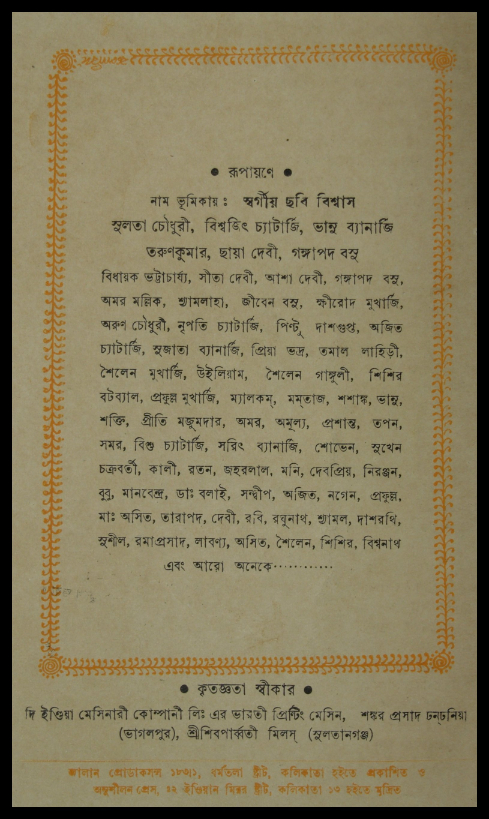 ● রূপায়ণে ●
নাম ভূমিকায়ঃ স্বর্গীয় ছবি বিশ্বাস
সুলতা চৌধুরী, বিশ্বজিৎ চ্যাটার্জি, ভানু ব্যানার্জি
তরুণকুমার, ছায়া দেবী, গঙ্গাপদ বসু
বিধায়ক ভট্টাচার্য্য, সীতা দেবী, আশা দেবী, গঙ্গাপদ বসু,
অমর মল্লিক, শ্যামলাহা, জীবেন বসু, ক্ষীরোদ মুখার্জি,
অরুণ চৌধুরী, নৃপতি চ্যাটার্জি, পিণ্টু দাশগুপ্ত, অজিত
চ্যাটার্জি, সুজাতা ব্যানার্জি, প্রিয়া ভদ্র, তমাল লাহিড়ী,
শৈলেন মুখার্জি, উইলিয়াম, শৈলেন গাঙ্গুলী, শিশির
বটব্যাল, প্রফুল্ল মুখার্জি, ম্যালকম্, মম্‌তাজ, শশাঙ্ক, ভানু,
শক্তি, প্রীতি মজুমদার, অমর, অমূল্য, প্রশান্ত, তপন,
সমর, বিশু চ্যাটার্জি, সরিৎ ব্যানার্জি, শোভেন, সুখেন
চক্রবর্তী, কালী, রতন, জহরলাল, মনি, দেবপ্রিয়, নিরঞ্জন,
বুবু, মানবেন্দ্র, ডাঃ বলাই, সন্দীপ, অজিত, নগেন, প্রফুল্ল,
মাঃ অসিত, তারাপদ, দেবী, রবি, রঘুনাথ, শ্যামল, দাশরথি,
সুশীল, রমাপ্রসাদ, লাবণ্য, অসিত, শৈলেন, শিশির, বিশ্বনাথ
এবং আরো অনেকে············
● কৃতজ্ঞতা স্বীকার ●
দি ইণ্ডিয়া মেসিনারী কোম্পানী লিঃ এর ভারতী প্রিন্টিং মেসিন, শঙ্কর প্রসাদ ঢন্‌ঢনিয়া
(ভাগলপুর), শ্রীশিবপার্ব্বতী মিলস্ (সুলতানগঞ্জ)
জালান প্রোডাকসন্স ধর্মতলা ষ্ট্রীট, কলিকাতা হইতে প্রকাশিত ও
অনুশীলন প্রেস, ৫২ ইণ্ডিয়ান মিরর ষ্ট্রীট, কলিকাতা ১৩ হইতে মুদ্রিত